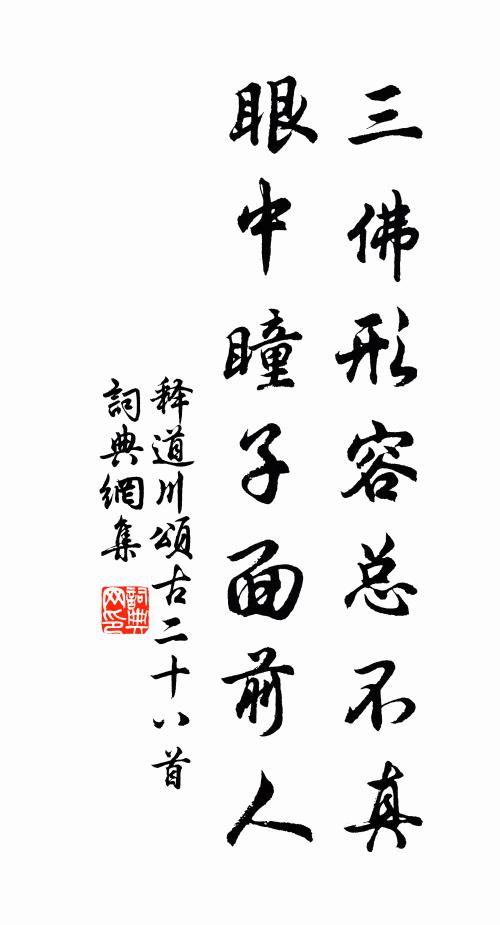 三佛形容总不真
眼中瞳子面前人
释道川頌古二十八首
詞典網集
詞典网印